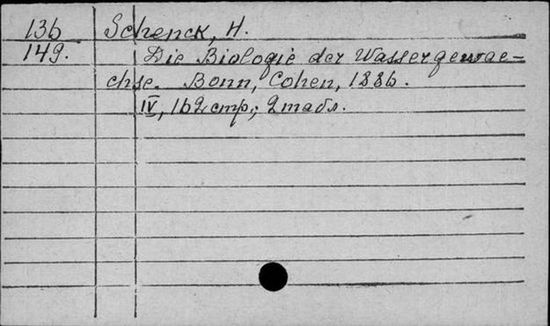 136 Schenck, H.
149. Die Biologie der Wassergewae-
chse. Bonn, Cohen, 1886.
IV, 162 стр., 2 табл.